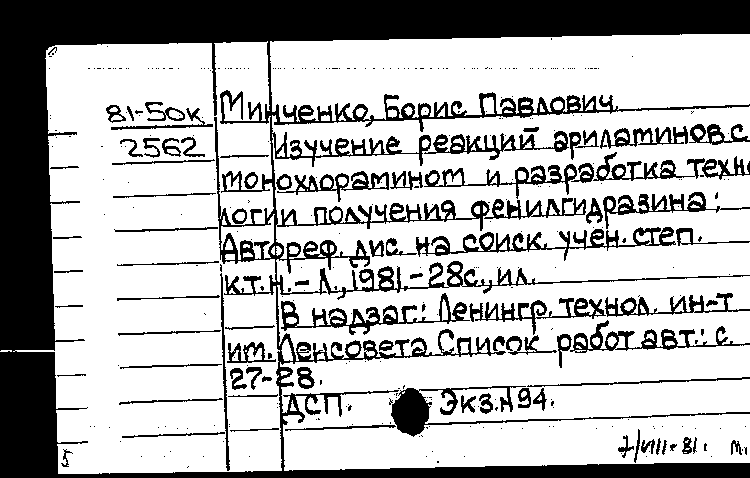 81-50к Минченко, Борис Павлович.
2562 Изучение реакций ариламинов с
монохлорамином и разработка техно
логии получения фенилгидразина:
Автореф. дис. на соиск. учен. степ.
к.т.н. – Л., 1981. – 28с., ил.
В надзаг.: Ленингр. технол. ин-т
им. Ленсовета. Список работ авт.: с.
27-28.
ДСП. Экз.№94.
7/VIII-81. м.
5